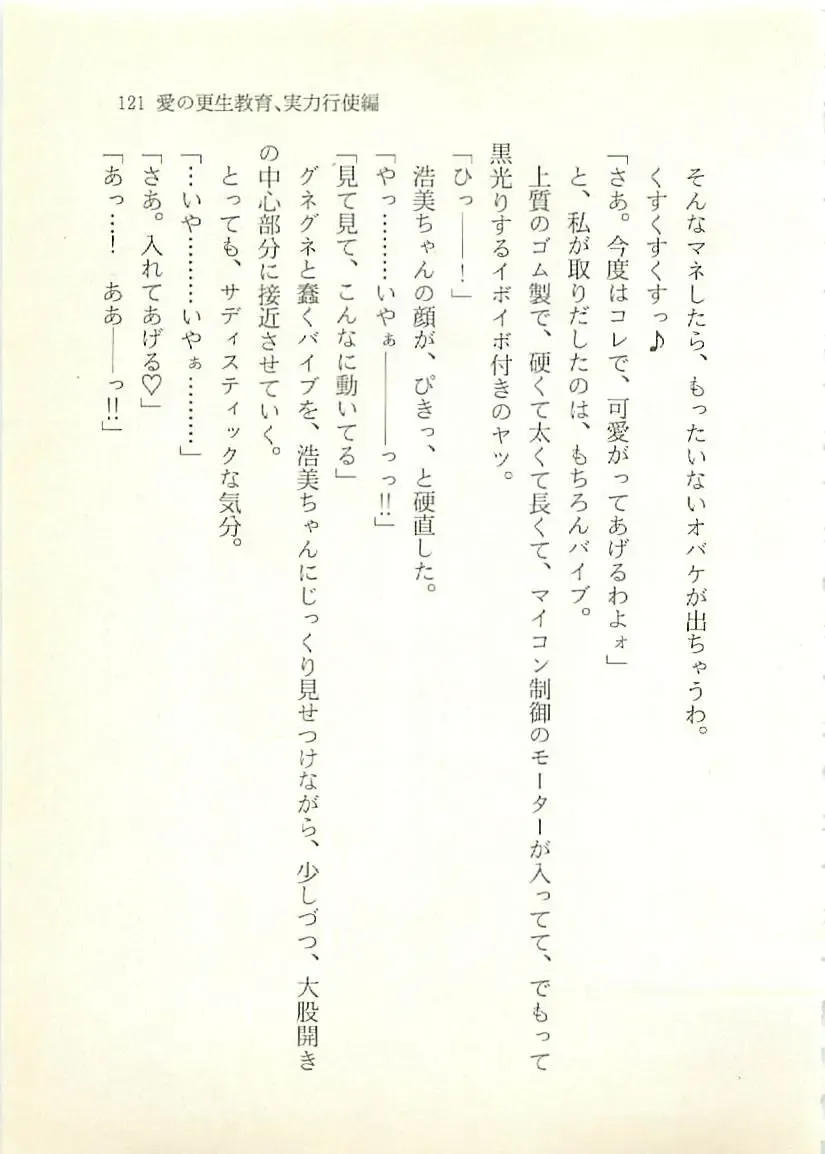 121 愛の更生教育、実力行使編
そんなマネしたら、もったいないオバケが出ちゃうわ。
くすくすくすっ♪
「さあ。今度はコレで、可愛がってあげるわよォ」
と、私が取りだしたのは、もちろんバイブ。
上質のゴム製で、硬くて太くて長くて、マイコン制御のモーターが入ってて、でもって
黒光りするイボイボ付きのヤツ。
「ひっ――！」
浩美ちゃんの顔が、ぴきっ、と硬直した。
「やっ………いやぁ―――っっ!!」
「見て見て、こんなに動いてる」
グネグネと蠢くバイブを、浩美ちゃんにじっくり見せつけながら、少しづつ、大股開き
の中心部分に接近させていく。
とっても、サディスティックな気分。
「…いや………いやぁ………」
「さあ。入れてあげる♡」
「あっ…！　ああ――っ!!」